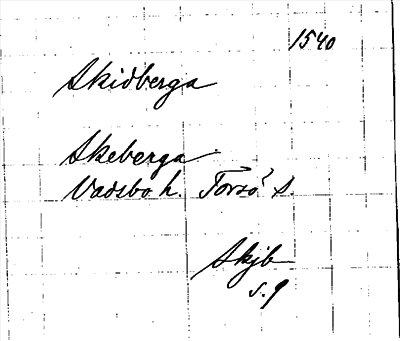 1540
Skidberga
Skeberga
Vadsbo h. Torsö s.
Skjb
s. 9